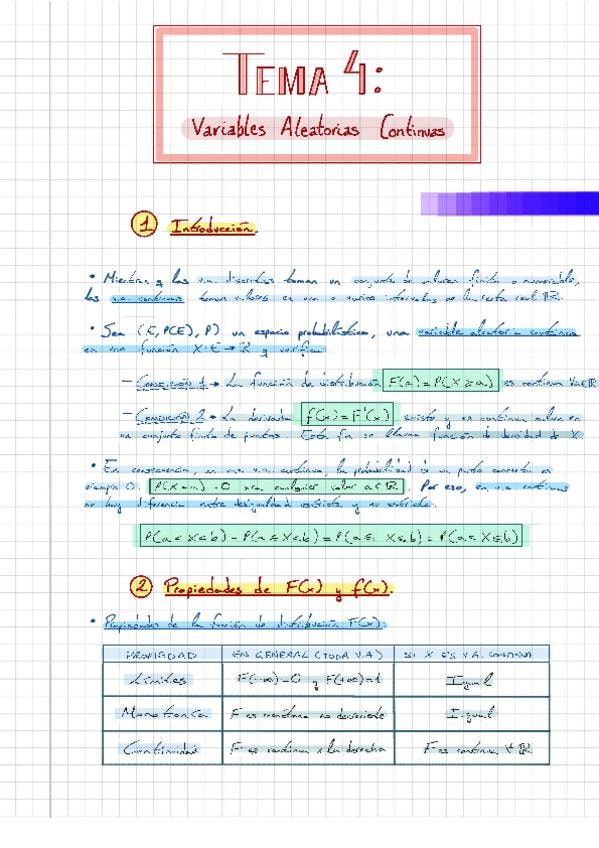 TEMA 4:
Variables Aleatorias Continuas
1 Introducción.
• Mientras q las v.a. discretas toman un conjunto de valores finito o numerable,
las v.a. continuas toman valores en uno o varios intervalos de la recta real ℝ.
• Sea (E, P(E), P) un espacio probabilístico, una variable aleatoria continua
es una función X: E → ℝ q verifica:
– CONDICIÓN 1 → La función de distribución F(a) = P(X ≤ a) es continua ∀a∈ℝ
– CONDICIÓN 2 → La derivada f(x) = F'(x) existe y es continua salvo en
un conjunto finito de puntos. Esta fn se llama función de densidad de X.
• En consecuencia, en una v.a. continua, la probabilidad de un punto concreto es
siempre 0. P(X = a) = 0 para cualquier valor a∈ℝ. Por eso, en v.a. continuas
no hay diferencia entre desigualdad estricta y no estricta.
P(a < X < b) = P(a ≤ X < b) = P(a ≤ X ≤ b) = P(a < X ≤ b)
2 Propiedades de F(x) y f(x).
• Propiedades de la función de distribución F(x):
PROPIEDAD EN GENERAL (TODA V.A) SI X ES V.A. CONTINUA
Límites F(-∞) = 0 y F(+∞) = 1 Igual
Monotonía F es monótona no decreciente Igual
Continuidad F es continua x la derecha F es continua ∀ ℝ